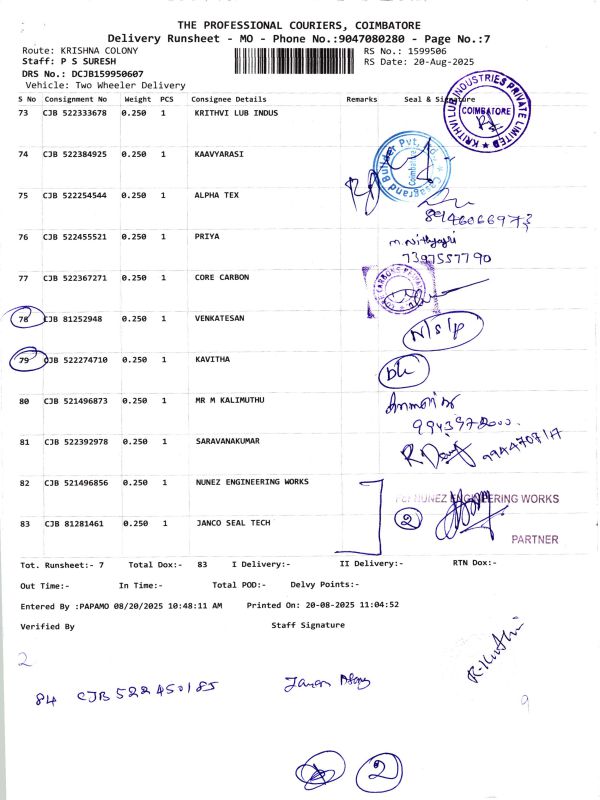 THE PROFESSIONAL COURIERS, COIMBATORE
Delivery Runsheet - MO - Phone No.:9047080280 - Page No.:7
Route: KRISHNA COLONY RS No.: 1599506
Staff: P S SURESH RS Date: 20-Aug-2025
DRS No.: DCJB159950607
Vehicle: Two Wheeler Delivery
S No Consignment No Weight PCS Consignee Details Remarks Seal & Signature
73 CJB 522333678 0.250 1 KRITHVI LUB INDUS
KRITHVI LUB INDUSTRIES PRIVATE LIMITED
COIMBATORE
74 CJB 522384925 0.250 1 KAAVYARASI
Casagrand Builder Pvt. Ltd.
Coimbatore
75 CJB 522254544 0.250 1 ALPHA TEX
8946066973
76 CJB 522455521 0.250 1 PRIYA
7397557790
77 CJB 522367271 0.250 1 CORE CARBON
78 CJB 81252948 0.250 1 VENKATESAN
N/S/P
79 CJB 522274710 0.250 1 KAVITHA
DL
80 CJB 521496873 0.250 1 MR M KALIMUTHU
81 CJB 522392978 0.250 1 SARAVANAKUMAR
82 CJB 521496856 0.250 1 NUNEZ ENGINEERING WORKS
NUNEZ ENGINEERING WORKS
2
83 CJB 81281461 0.250 1 JANCO SEAL TECH
PARTNER
Tot. Runsheet:- 7 Total Dox:- 83 I Delivery:- II Delivery:- RTN Dox:-
Out Time:- In Time:- Total POD:- Delvy Points:-
Entered By :PAPAMO 08/20/2025 10:48:11 AM Printed On: 20-08-2025 11:04:52
Verified By Staff Signature
2
84 CJB 522450185
9
2